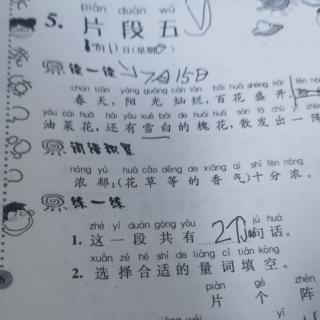 piàn duàn wǔ
5. 片段五
月11日(星期
读一读 7月15日
chūn tiān yáng guāng càn làn bǎi huā shèng kāi
春天,阳光灿烂,百花盛开
yóu cài huā hái yǒu xuě bái de huái huā sàn fā chū yí zhèn
油菜花,还有雪白的槐花,散发出一阵
词语积累
nóng yù huā cǎo děng de xiāng qì shí fēn nóng
浓郁:(花草等的香气)十分浓。
练一练
zhè yí duàn gòng yǒu jù huà
1. 这一段共有 2个 句话。
xuǎn zé hé shì de liàng cí tián kòng
2. 选择合适的量词填空。
piàn gè zhèn
片 个 阵